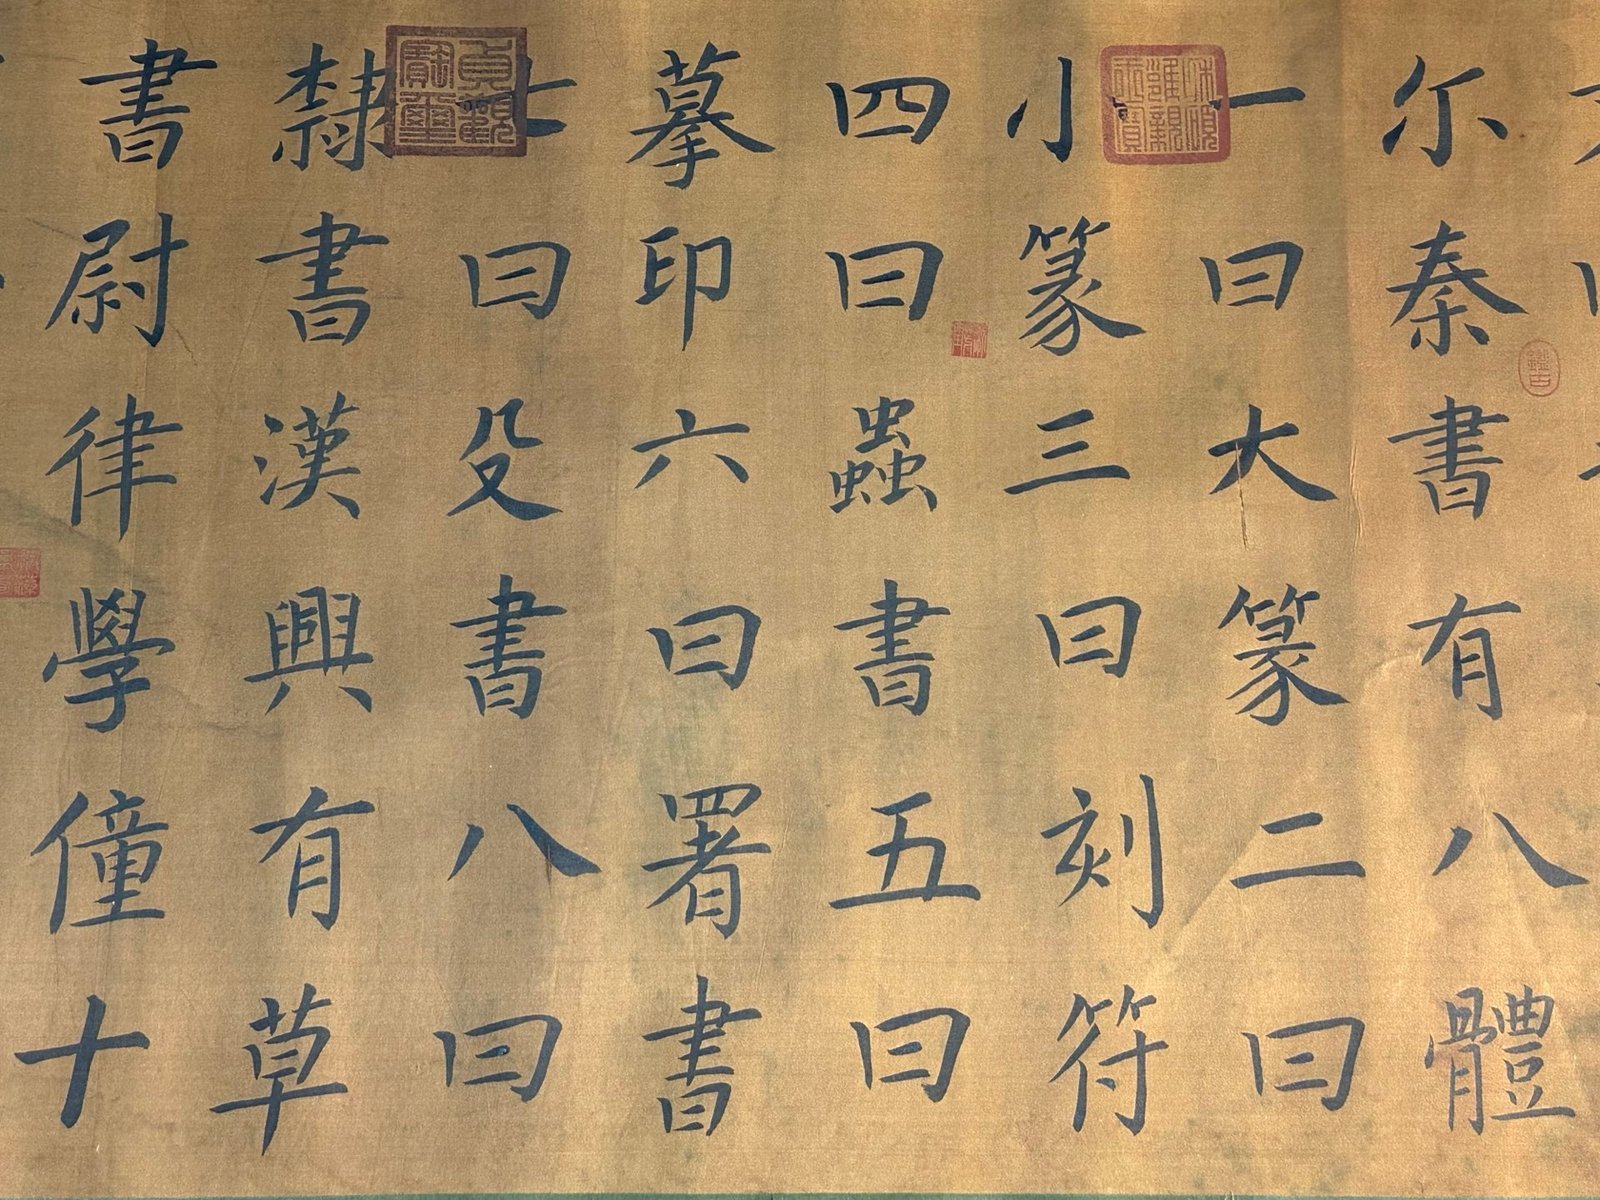 尔秦書有八體
一曰大篆二曰
小篆三曰刻符
四曰蟲書五曰
摹印六曰署書
七曰殳書八曰
隸書漢興有草
書尉律學僮十